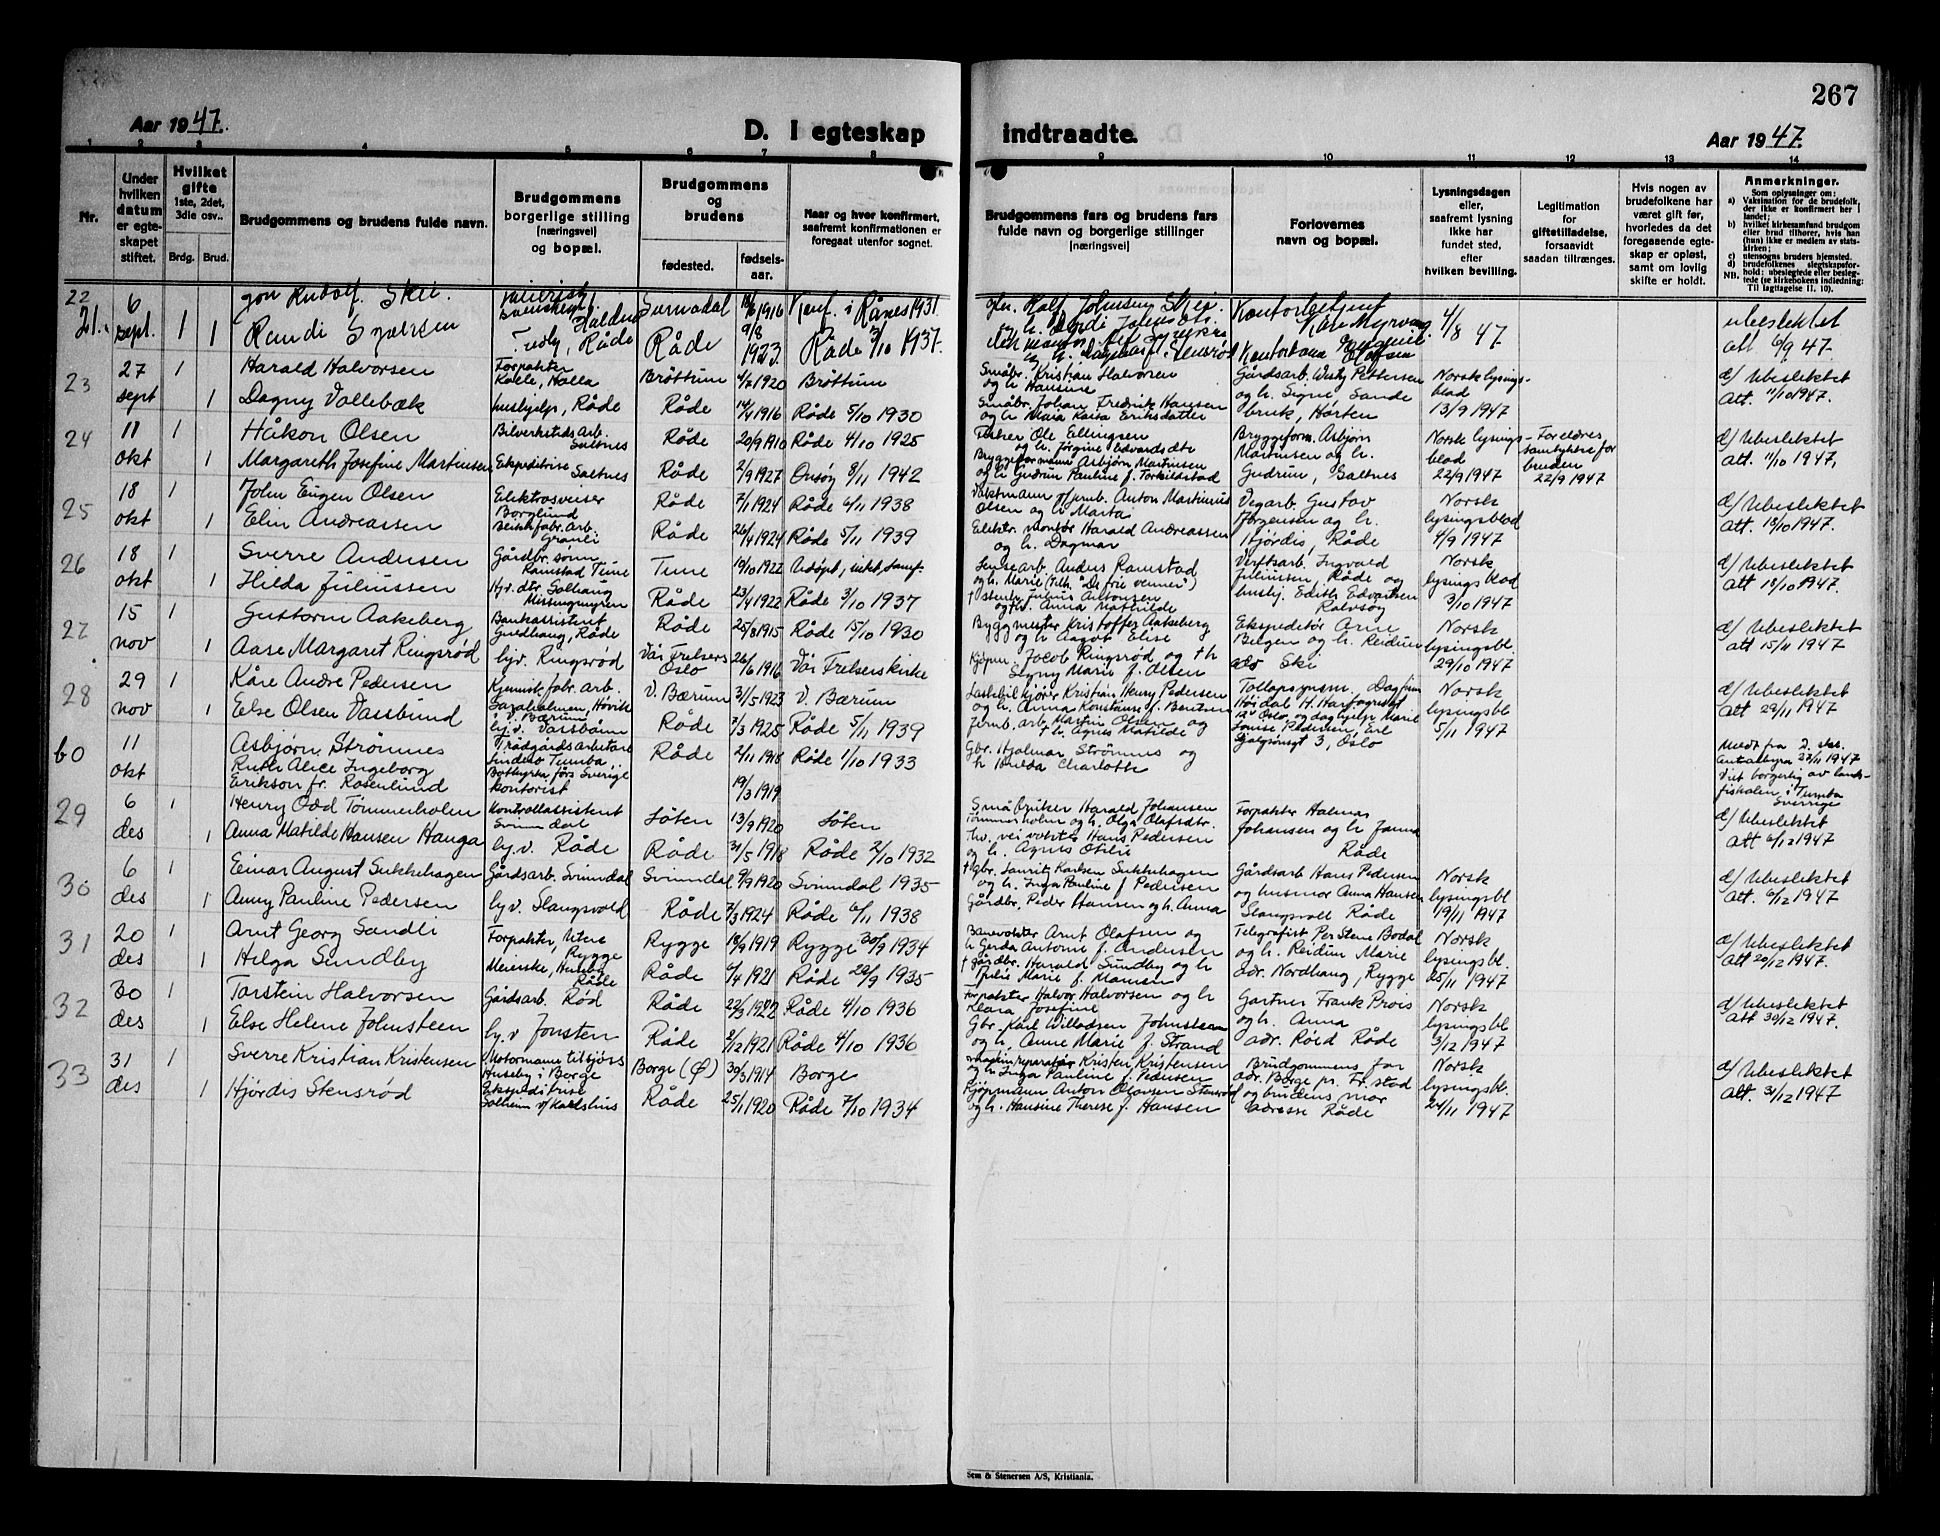 267
Aar 1947.
D. I egteskap
indtraadte.
Aar 1947.
1 2 3 4 5 6 7 8 9 10 11 12 13 14
Nr.
Under hvilken datum er egteskapet stiftet.
Hvilket gifte 1ste, 2det, 3die osv..
Brdg. Brud.
Brudgommens og brudens fulde navn.
Brudgommens borgerlige stilling [næringsvei] og bopæl.
Brudgommens og brudens
fødested.
fødselsaar.
Naar og hvor konfirmert, saafremt konfirmationen er foregaat utenfor sognet.
Brudgommens fars og brudens fars fulde navn og borgerlige stillinger [næringsvei]
Forlovernes navn og bopæl.
Lysningsdagen eller, saafremt lysning ikke har fundet sted, efter hvilken bevilling.
Legitimation for giftetilladelse, forsaavidt saadan tiltrænges.
Hvis nogen av brudefolkene har været gift før, hvorledes da det foregaaende egteskap er opløst, samt om lovlig skifte er holdt.
Anmerkninger.
Som oplysninger om:
a) Vaksination for de brudefolk, der ikke er konfirmert her i landet;
b) hvilket kirkesamfund brudgom eller brud tilhører, hvis han (hun) ikke er medlem av statskirken;
c) utensogns bruders hjemsted.
d) brudefolkenes slegtskapsforhold: ubeslegtede eller beslegtede (se kirkebokens indledning: Til iagttagelse II. 10).
NB.
22 6 Jon Rudolf Skei. Surnadal 1916 Konf. i Rånes 1931
21. sept. 1 1 Randi Råde Råde 9/8 1923. Råde 3/10 1937. 4/8 47 ubeslektet att 6/9 47.
23 27 1 Harald Halvorsen Forpakter Brøttum 4/2 1920 Brøttum Småbr. Kristian Halvorsen og h. Hansine Gårdsarb. Pettersen Norsk lysings- d/ Ubeslektet
sept 1 Dagny Vallebæk hushjelp, Råde Råde 14/4 1916 Råde 5/10 1930 Småbr. Johan Fredrik Hansen og h. Eriksdatter og h. Signe, Sande bruk, Horten blad 13/9 1947 att. 11/10 1947.
24 11 1 Håkon Olsen Bilverkstedsarb. Saltnes Råde 20/9 1910 Råde 4/10 1925 Fisker Ole Ellingsen og h. Jørgine Edvardsdtr Bryggeform. Asbjørn Norsk lysings- Foreldres samtykke for d/ Ubeslektet
okt 1 Margareth Josefine Martinsen Ekspeditrise Saltnes Råde 2/9 1927 Onsøy 8/11 1942 Bryggeformann Asbjørn Martinsen og h. Gudrun Pauline f. Torkildstad Martinsen og h. Gudrun, Saltnes blad 22/9 1947 bruden 22/9 1947 att. 11/10 1947,
25 18 1 John Eugen Olsen Elektrosveiser Borglund Råde 7/1 1924 Råde 6/11 1938 Vaktmann Anton Martinius Olsen og h. Marta Vegarb. Gustav Norsk d/ Ubeslektet
okt 1 Elin Andreassen Råde 26/4 1924 Råde 5/11 1939 Elektr. montør Harald Andreassen og h. Dagmar Jørgensen og h. Hjørdis, Råde lysingsblad 4/9 1947 att. 18/10 1947.
26 18 1 Sverre Andersen Gårdbr. sønn Ramstad Tune Tune 19/10 1922 Anders Ramstad og h. Marie "De frie venner") Ingvald Norsk d/ Ubeslektet
okt 1 Hilda Juliussen Råde 23/4 1922 Råde 3/10 1937 Julius Antonsen og h. Anna Mathilde Juliussen, Råde og hushj. Edith Edvartsen Rolvsøy lysingsblad 3/10 1947 att 18/10 1947.
27 15 1 Gustorm Aakeberg Bankassistent Råde Råde 25/8 1915 Råde 15/10 1930 Byggmester Kristoffer Aakeberg og h. Aagot Elise Ekspeditør Arne Norsk d/ Ubeslektet
nov 1 Aase Margaret Ringsrød hjv. Ringsrød Vår Frelsers Oslo 26/6 1916 Vår Frelserskirke Kjøpm. Jacob Ringsrød og h Signy Marie f. Olsen Bergen og h. Reidun adr Ski lysingsbl. 29/10 1947 att 15/11 1947
28 29 1 Kåre Andre Pedersen Kjemisk fabr. arb. Høvik V. Bærum V. Bærum 31/5 1923 V. Bærum Lastebilkjører Kristian Henry Pedersen og h. Anna Konstanse f. Berntsen Norsk d/ Ubeslektet
nov 1 Else Olsen Vassbund Råde 7/3 1925 Råde 5/11 1939 Jernb. arb. Martin Olsen og h. Agnes Matilde Oslo lysingsbl. 5/11 1947 att 29/11 1947
60 11 Asbjørn Strømnes Trädgårdsarbetare Råde 2/11 1918 Råde 1/10 1933 Gbr. Hjalmar Strømnes og h Hulda Charlotte Meldt fra 2. skr. 27/11 1947
okt Ruth Alice Ingeborg Erikson fr. Rosenlund Tumba, Botkyrka förs Sverige kontorist 19/3 1919 Viet borgerlig av landsfiskalen i Tumba Sverige
29 6 1 Henry Odd Tømmerholen Kontrollassistent Svinndal Løten 13/9 1920 Løten Småbruker Harald Johansen Tømmerholen og h. Olga Olafsdtr. Forpakter Halmar d/ Ubeslektet
des 1 Anna Matilde Hansen Hauga hj.v. Råde Råde 31/5 1918 Råde 2/10 1932 Hans Pedersen og h. Agnes Otilie Johansen og h Janna Råde att 6/12 1947
30 6 1 Einar August Sukkehagen Gårdsarb. Svinndal Svinndal 9/9 1920 Svinndal 1935 †gbr. Laurits Karlsen Sukkehagen og h. Inga Pauline f Pedersen Gårdsarb Hans Pedersen Norsk d/ Ubeslektet
des 1 Anny Pauline Pedersen hj v. Slangsvold Råde 7/3 1924 Råde 6/11 1938 Gårdbr. Peder Hansen og h. Anna og husmor Anna Hansen Slangsvoll Råde lysingsbl. 19/11 1947 att. 6/12 1947
31 20 1 Arnt Georg Sandli Forpakter, Rygge Rygge 18/9 1919 Rygge 30/9 1934 Banevokter Arnt Olafsen og h Gerda Antonie f. Andersen Telegrafist Per Stene Bodal Norsk d/ Ubeslektet
des 1 Helga Sundby Meierske, Huseby Råde Råde 6/4 1921 Råde 22/9 1935 † gårdbr. Harald Sundby og h Julie Marie f. og h. Reidun Marie adr. Nordhaug, Rygge lysingsbl. 25/11 1947 att 20/12 1947.
32 30 1 Torstein Halvorsen Gårdsarb. Rød Råde 22/3 1922 Råde 4/10 1936 Forpakter Halvor Halvorsen og h Klara Josefine Gartner Frank Norsk d/ Ubeslektet
des 1 Else Helene Johnsteen hj.v Jonsten Råde 8/12 1921 Råde 4/10 1936 Gbr. Karl Willadsen Johnsteen og h. Anne Marie f. Strand og h. Anna adr. Roed Råde lysingsbl. 3/12 1947 att 30/12 1947.
33 31 1 Sverre Kristian Kristensen Motormann tilsjøss Huseby i Borge Borge (Ø) 30/3 1914 Borge Kristen Kristensen og h Inga Pauline f. Pedersen Brudgommens far adr. Borge pr. Fr. stad Norsk d/ Ubeslektet
des 1 Hjørdis Stensrød Ekspeditrise Solheim v/ Karlshus Råde 25/11 1920 Råde 7/10 1934 Kjøpmann Anton Olavsen Stensrød og h. Hansine Therese f. Hansen og brudens mor adresse Råde lysingsbl. 24/11 1947 att. 31/12 1947
Sem & Stenersen A/S, Kristiania.